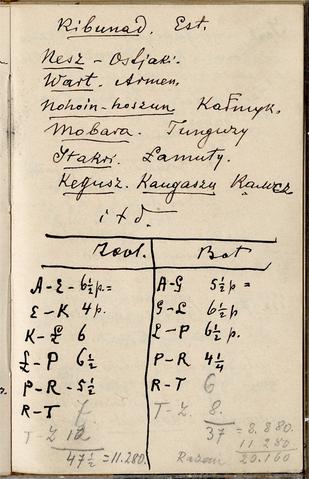 Ribunad. Est.
Nesz - Ostjaki.
Wart. Armen.
Nohoin-hoszun Kałmyk.
Mobara. Tunguzy
Itakri. Lamuty.
Kegusz. Kangaszu
i t d.
Zool. Bot
A-E- 6½ p. = A-G 5½ p =
E-K 4 p. G-Ł 6½ p.
K-Ł 6 L-P 6½ p
Ł-P 6½ P-R 4¼
P-R-5½ R-T 6
R-T 7 T-Z. 8.
T-Z 12 37 = 8.880.
47½ = 11.280. 11 280
Razem 20.160